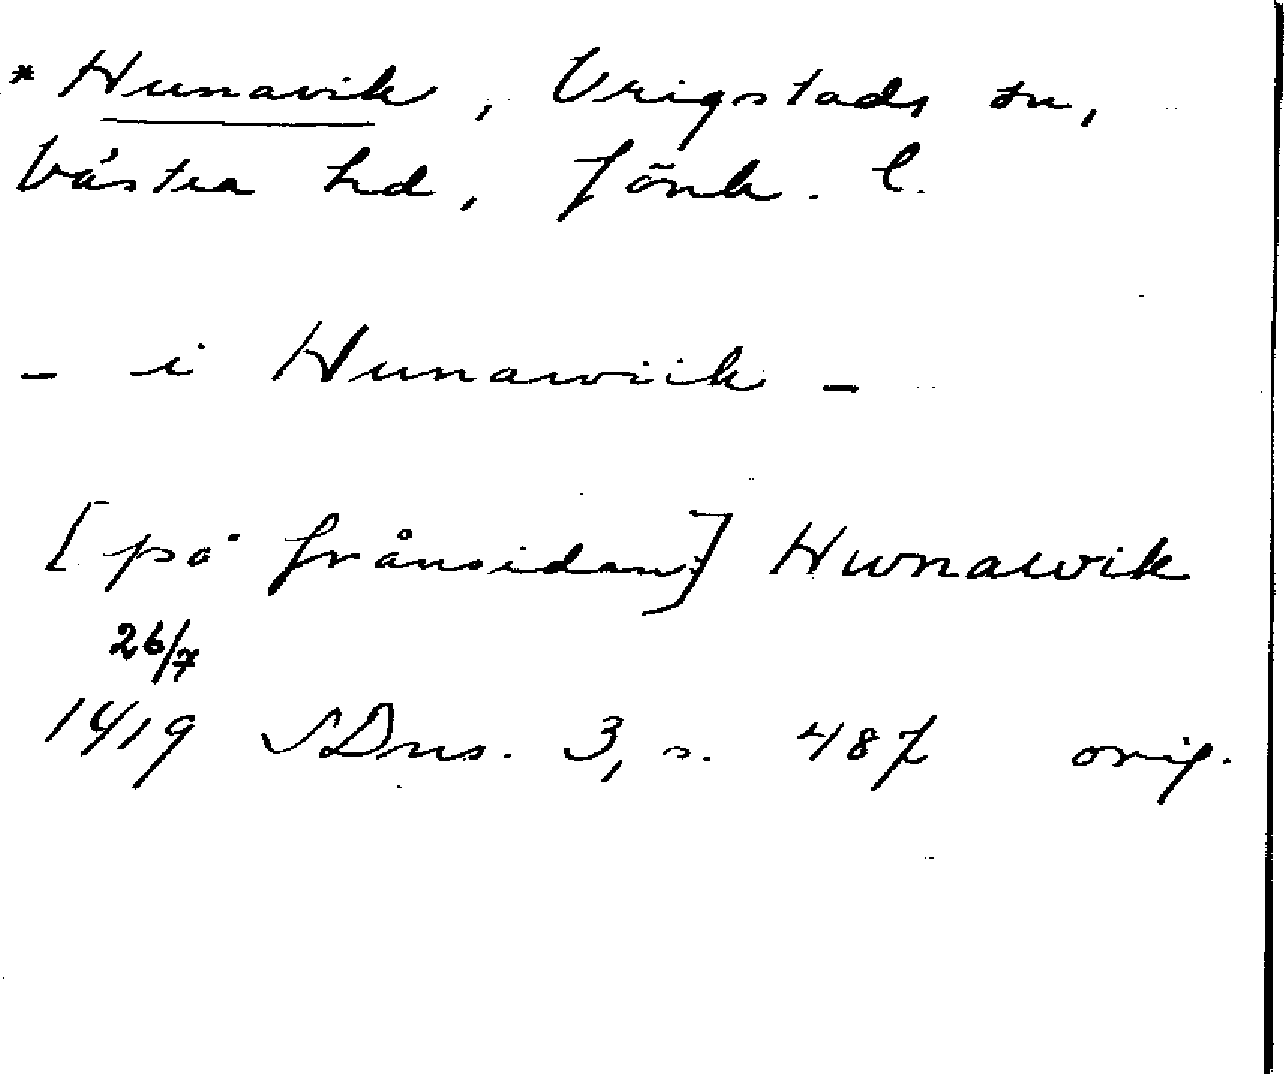 * Hunavik, Vrigstads sn,
Västra hd, Jönk. l.
- i Hunawiik -
[på frånsidan:] Hwnawik
26/7
1419 SDns. 3, s. 487 orig.